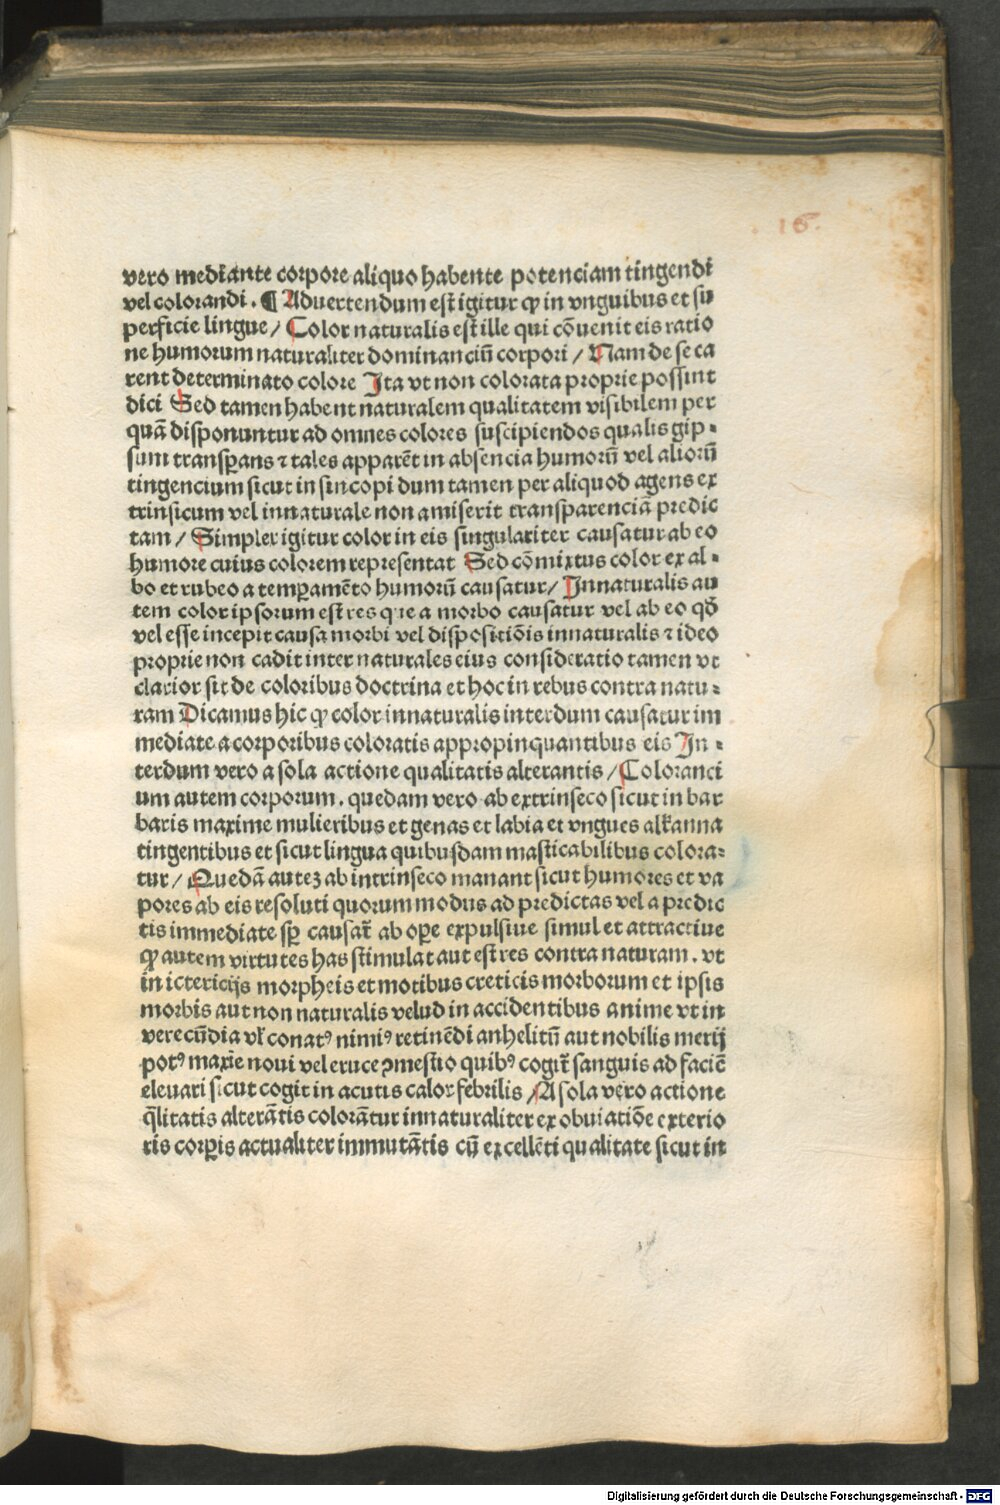 16.
vero mediante corpore aliquo habente potenciam tingendi
vel colorandi . ¶ Aduertendum est igitur ꝙ in vnguibus et su
perficie lingue / Color naturalis est ille qui cōuenit eis ratio
ne humorum naturaliter dominanciū corpori / Nam de se ca
rent determinato colore Ita vt non colorata proprie possint
dici Sed tamen habent naturalem qualitatem visibilem per
quā disponuntur ad omnes colores suscipiendos qualis gip⸗
sum transꝑans ⁊ tales apparēt in absencia humorū vel aliorū
tingencium sicut in sincopi dum tamen per aliquod agens ex
trinsicum vel innaturale non amiserit transparenciā predic
tam / Simpler igitur color in eis singulariter causatur ab eo
humore cuius colorem representat Sed cōmixtus color ex al⸗
bo et rubeo a temꝑamēto humorū causatur / Innaturalis au
tem color ipsorum est res que a morbo causatur vel ab eo qđ
vel esse incepit causa morbi vel dispositiōis innaturalis ⁊ ideo
proprie non cadit inter naturales eius consideratio tamen vt
clarior sit de coloribus doctrina et hoc in rebus contra natu⸗
ram Dicamus hic ꝙ color innaturalis interdum causatur im
mediate a corporibus coloratis appropinquantibus eis In⸗
terdum vero a sola actione qualitatis alterantis / Coloranci
um autem corporum . quedam vero ab extrinseco sicut in bar
baris maxime mulieribus et genas et labia et vngues alkanna
tingentibus et sicut lingua quibusdam masticabilibus colora⸗
tur / Quedā autez ab intrinseco manant sicut humores et va
pores ab eis resoluti quorum modus ad predictas vel a predic
tis immediate sꝑ causat̄ ab oꝑe expulsiue simul et attractiue
ꝙ autem virtutes has stimulat aut est res contra naturam . vt
in ictericijs morpheis et motibus creticis morborum et ipsis
morbis aut non naturalis velud in accidentibus anime vt in
verecūdia vl̄ conatꝰ nimiꝰ retinēdi anhelitū aut nobilis merij
potꝰ maxīe noui vel eruce ꝯmestio quibꝰ cogit̄ sanguis ad faciē
eleuari sicut cogit in acutis calor febrilis / A sola vero actione
q̄litatis alterātis colorātur innaturaliter ex obuiatiōe exterio
ris corꝑis actualiter immutātis cū excellēti qualitate sicut in
Digitalisierung gefördert durch die Deutsche Forschungsgemeinschaft - DFG